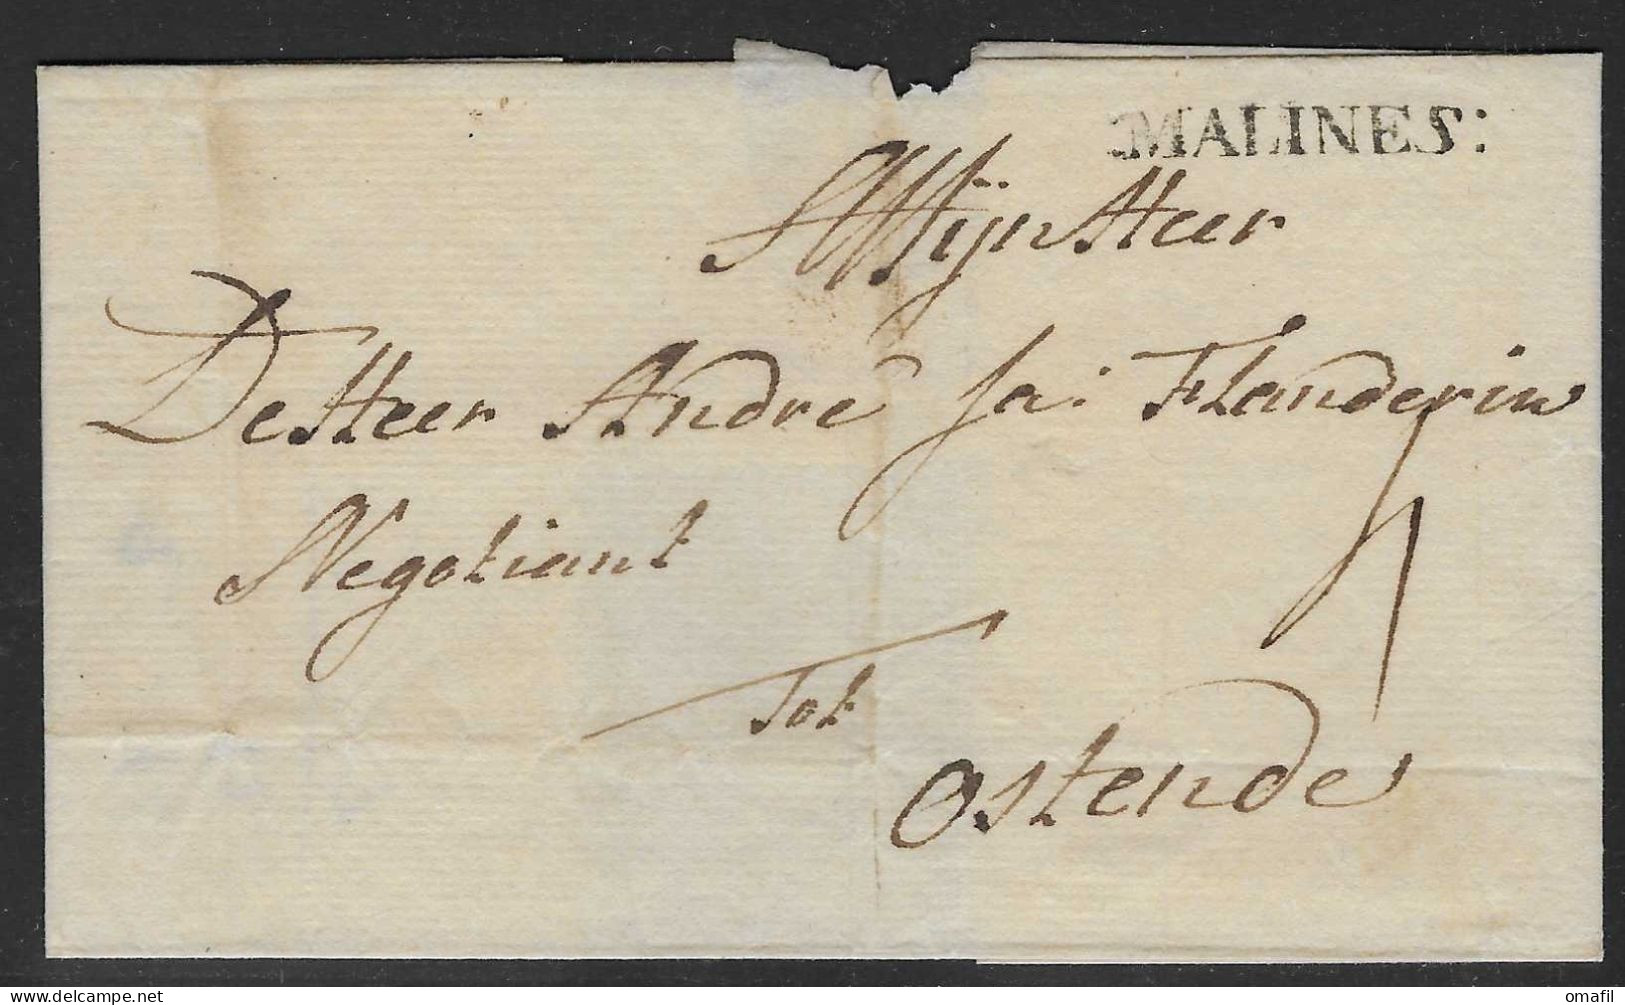 MALINES:
Mijn Heer
De Heer André Ja: Flanderin
Negotiant
Tot
Ostende
delcampe.net
omafil